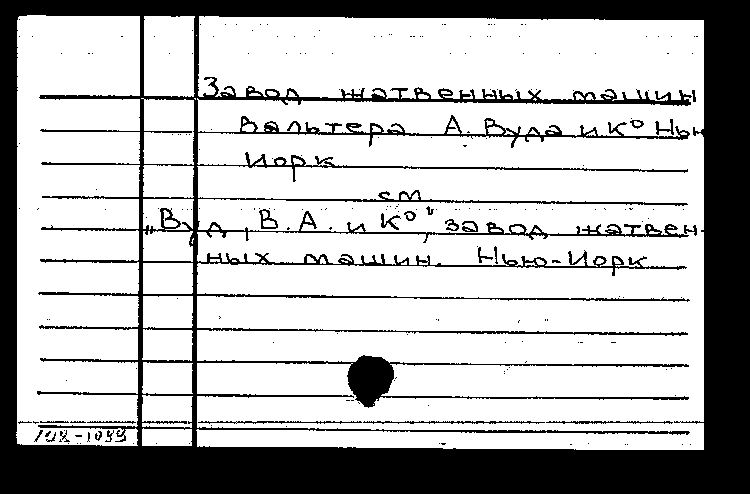 Завод жатвенных машин
Вальтера А. Вуда и К° Нью
Иорк
см.
„Вуд, В. А. и К°", завод жатвен-
ных машин. Нью-Иорк